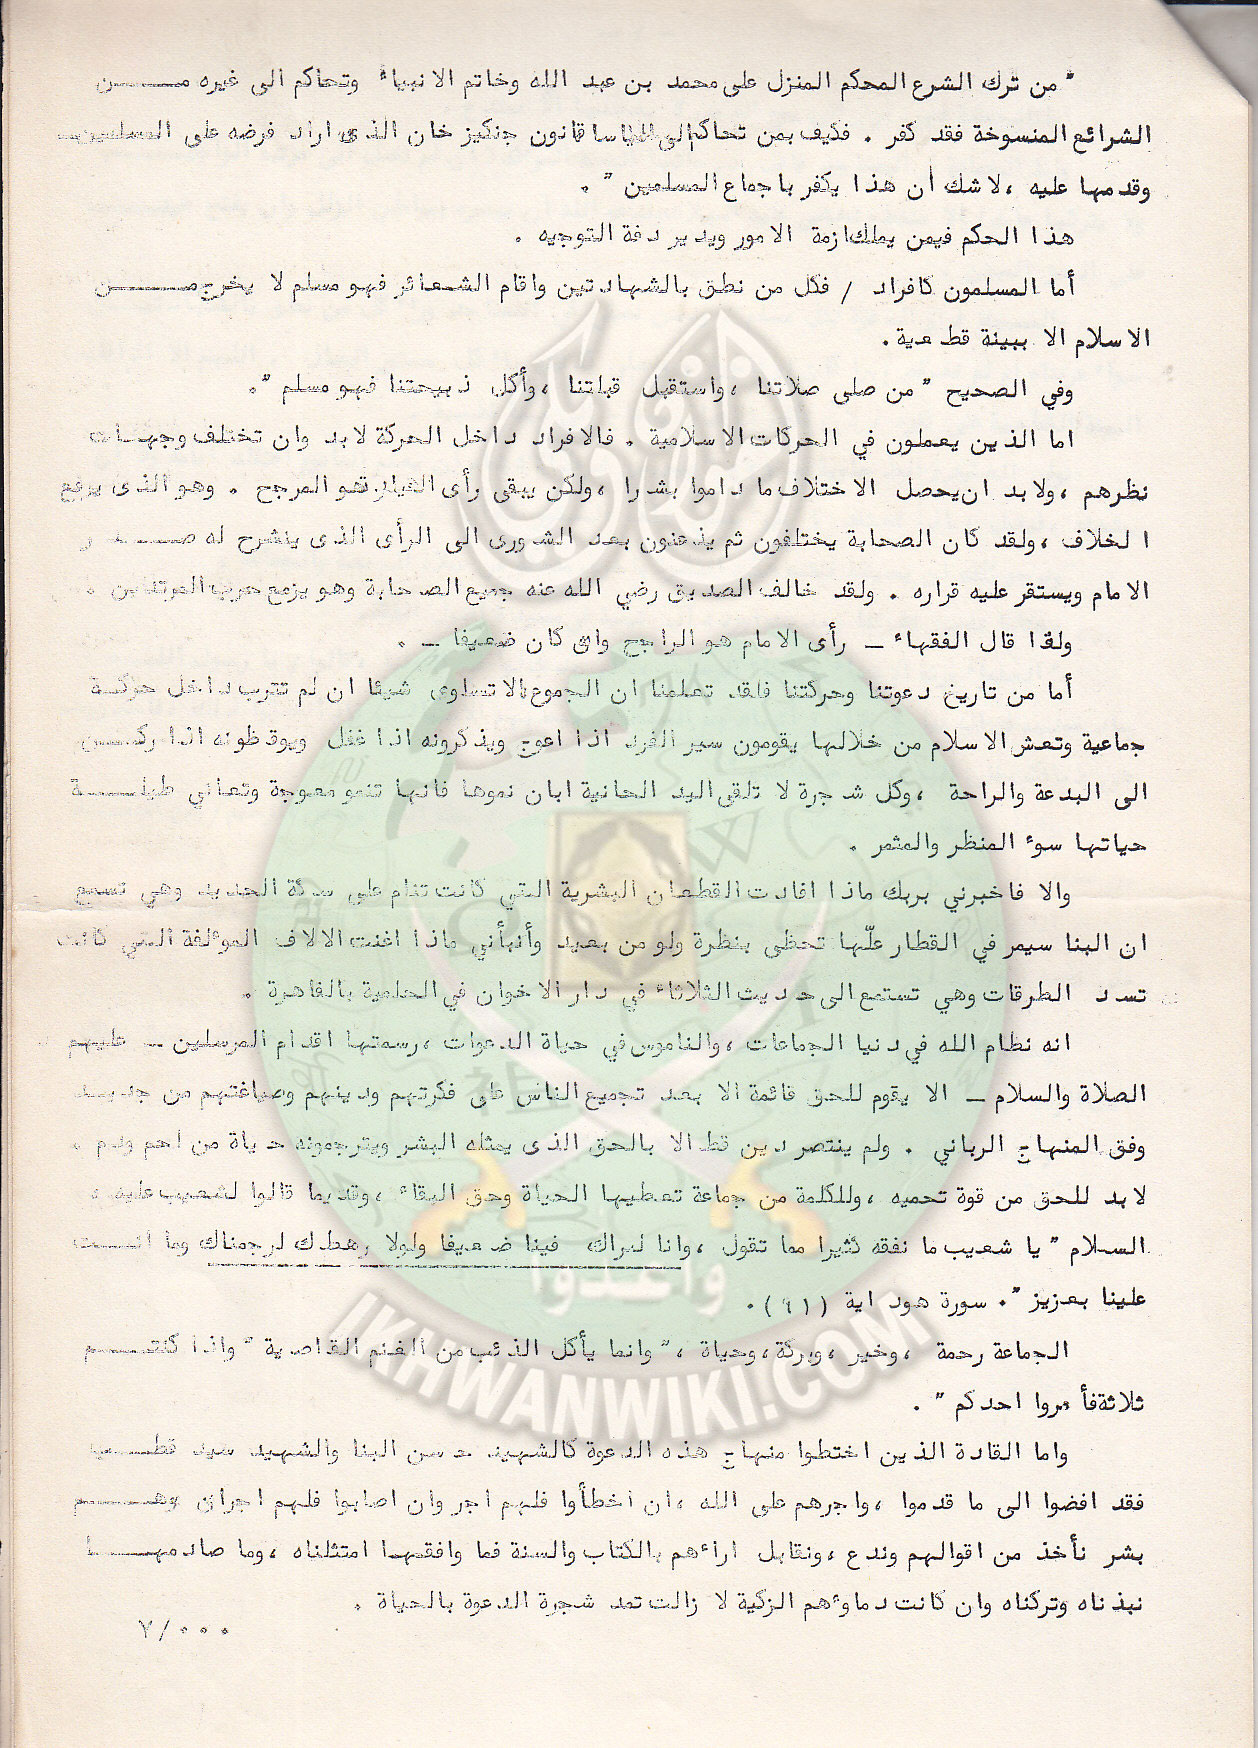 " من ترك الشرع المحكم المنزل على محمد بن عبد الله وخاتم الانبياء وتحاكم الى غيره مـــن
الشرائع المنسوخة فقد كفر . فكيف بمن تحاكم الى الياسا قانون جنكيز خان الذى اراد فرضه على المسلمين
وقدمها عليه ، لا شك أن هذا يكفر باجماع المسلمين " .
هذا الحكم فيمن يملك ازمة الامور ويدير دفة التوجيه .
أما المسلمون كافراد / فكل من نطق بالشهادتين واقام الشعائر فهو مسلم لا يخرج مـــن
الاسلام الا ببينة قطعية .
وفي الصحيح " من صلى صلاتنا ، واستقبل قبلتنا ، وأكل ذبيحتنا فهو مسلم " .
اما الذين يعملون في الحركات الاسلامية . فالافراد داخل الحركة لابد وان تختلف وجهـات
نظرهم ، ولابد ان يحصل الاختلاف ما داموا بشرا ، ولكن يبقى رأى هو المرجح . وهو الذى يرفع
الخلاف ، ولقد كان الصحابة يختلفون ثم يذعنون بعد الشورى الى الرأى الذى ينشرح له صـــدر
الامام ويستقر عليه قراره . ولقد خالف الصديق رضي الله عنه جميع الصحابة وهو يزمع حرب المرتدين .
ولذا قال الفقهاء ـ رأى الامام هو الراجح وان كان ضعيفا ـ .
أما من تاريخ دعوتنا وحركتنا فلقد تعلمنا ان الجموع لا تساوى شيئا ان لم تترب داخل حركـة
جماعية وتعش الاسلام من خلالها يقومون سير الفرد اذا اعوج ويذكرونه اذا غفل ويوقظونه اذا ركـــن
الى البدعة والراحة ، وكل شجرة لا تلقى اليد الحانية ابان نموها فانها تنمو معوجة وتعاني طيلـــة
حياتها سوء المنظر والمثمر .
والا فاخبرني بربك ماذا افادت القطعان البشرية التي كانت تنام على سكة الحديد وهي تسمع
ان البنا سيمر في القطار علّها تحظى بنظرة ولو من بعيد وأنبأني ماذا اغنت الالاف المؤلفة التي كانت
تسد الطرقات وهي تستمع الى حديث الثلاثاء في دار الاخوان في الحلمية بالقاهرة .
انه نظام الله في دنيا الجماعات ، والناموس في حياة الدعوات ، رسمتها اقدام المرسلين ـ عليهم
الصلاة والسلام ـ الا يقوم للحق قائمة الا بعد تجميع الناس على فكرتهم ودينهم وصياغتهم من جديـد
وفق المنهاج الرباني . ولم ينتصر دين قط الا بالحق الذى يمثله البشر ويترجمونه حياة من لحم ودم .
لابد للحق من قوة تحميه ، وللكلمة من جماعة تعطيها الحياة وحق البقاء ، وقديما قالوا لشعيب عليه
السلام " يا شعيب ما نفقه كثيرا مما تقول ، وانا لنراك فينا ضعيفا ولولا رهطك لرجمناك وما انـــت
علينا بعزيز " . سورة هود اية (٩١) .
الجماعة رحمة ، وخير ، وبركة ، وحياة ، " وانما يأكل الذئب من الغنم القاصية " واذا كنتـــم
ثلاثة فأمروا احدكم " .
واما القادة الذين اختطوا منهاج هذه الدعوة كالشهيد حسن البنا والشهيد سيد قطـــب
فقد افضوا الى ما قدموا ، واجرهم على الله ، ان اخطأوا فلهم اجر وان اصابوا فلهم اجران وهـــم
بشر نأخذ من اقوالهم وندع ، ونقابل اراءهم بالكتاب والسنة فما وافقهما امتثلناه ، وما صادمهـــا
نبذناه وتركناه وان كانت دماؤهم الزكية لا زالت تمد شجرة الدعوة بالحياة .
٧/٠٠٠
إخوان ويكي
وأعدوا
IKHWANWIKI.COM